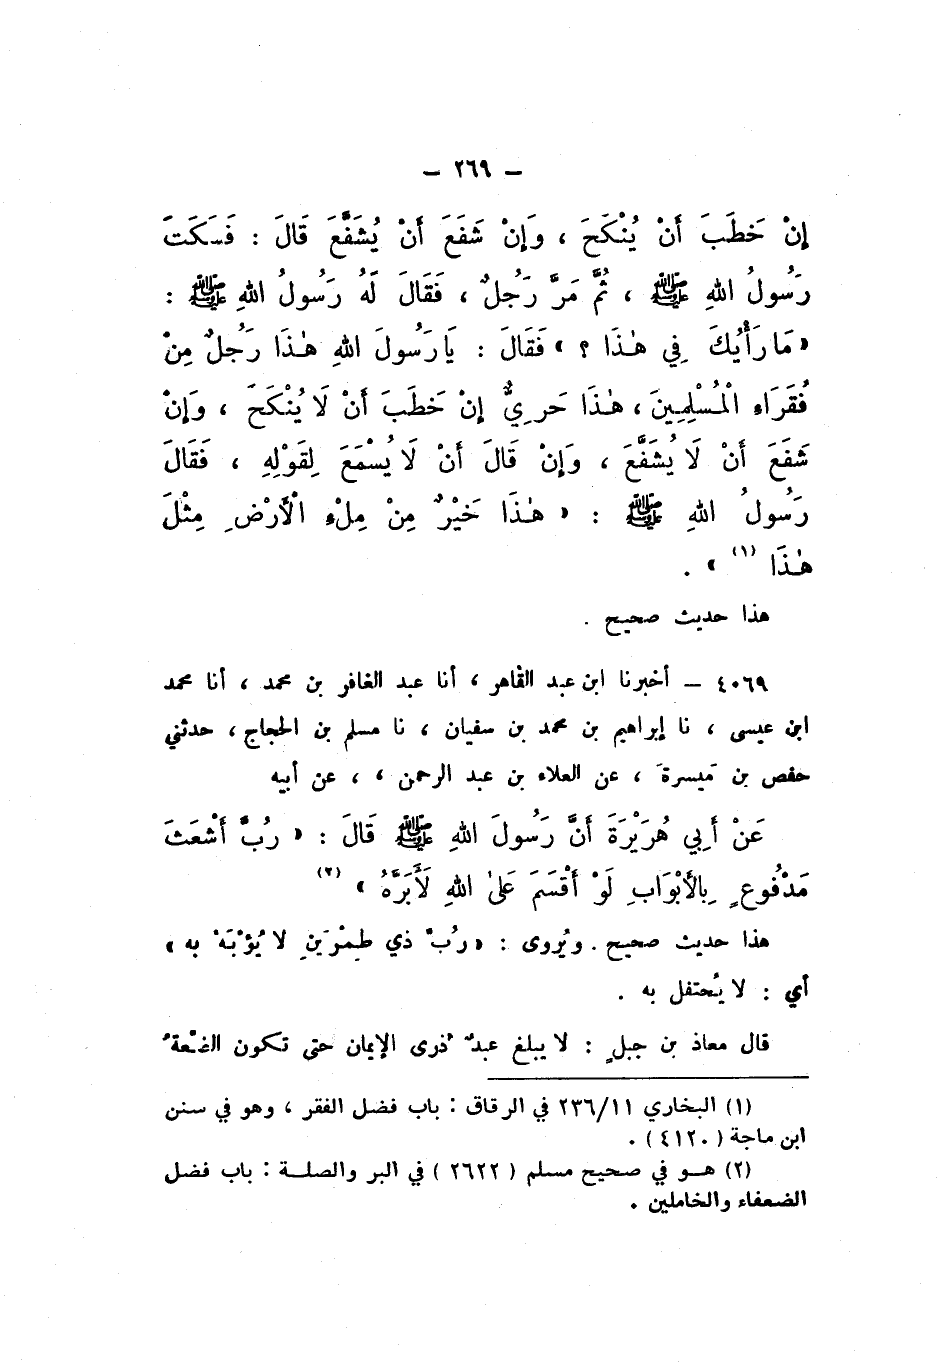 – ٢٦٩ –
إِنْ خَطَبَ أَنْ يُنْكَحَ ، وَإِنْ شَفَعَ أَنْ يُشَفَّعَ قَالَ : فَسَكَتَ
رَسُولُ اللهِ ﷺ ، ثُمَّ مَرَّ رَجُلٌ ، فَقَالَ لَهُ رَسُولُ اللهِ ﷺ :
« مَا رَأْيُكَ فِي هٰذَا ؟ » فَقَالَ : يَا رَسُولَ اللهِ هٰذَا رَجُلٌ مِنْ
فُقَرَاءِ الْمُسْلِمِينَ ، هٰذَا حَرِيٌّ إِنْ خَطَبَ أَنْ لَا يُنْكَحَ ، وَإِنْ
شَفَعَ أَنْ لَا يُشَفَّعَ ، وَإِنْ قَالَ أَنْ لَا يُسْمَعَ لِقَوْلِهِ ، فَقَالَ
رَسُولُ اللهِ ﷺ : « هٰذَا خَيْرٌ مِنْ مِلْءِ الْأَرْضِ مِثْلَ
هٰذَا (١) » .
هذا حديث صحيح .
٤٠٦٩ – أخبرنا ابن عبد القاهر ، أنا عبد الغافر بن محمد ، أنا محمد
ابن عيسى ، نا إبراهيم بن محمد بن سفيان ، نا مسلم بن الحجاج ، حدثني
حفص بن مَيسرةَ ، عن العلاء بن عبد الرحمن ، ، عن أبيه
عَنْ أَبِي هُرَيْرَةَ أَنَّ رَسُولَ اللهِ ﷺ قَالَ : « رُبَّ أَشْعَثَ
مَدْفُوعٍ بِالأَبْوَابِ لَوْ أَقْسَمَ عَلىٰ اللهِ لَأَبَرَّهُ » (٢)
هذا حديث صحيح . ويُروى : « رُبَّ ذي طِمْرَينِ لا يُؤْبَهُ به »
أي : لا يُحتفل به .
قال معاذ بن جبلٍ : لا يبلغ عبدٌ ذُرى الإيمان حتى تكون الضَّعَةُ
(١) البخاري ٢٣٦/١١ في الرقاق : باب فضل الفقر ، وهو في سنن
ابن ماجة ( ٤١٢٠ ) .
(٢) هو في صحيح مسلم ( ٢٦٢٢ ) في البر والصلة : باب فضل
الضعفاء والخاملين .